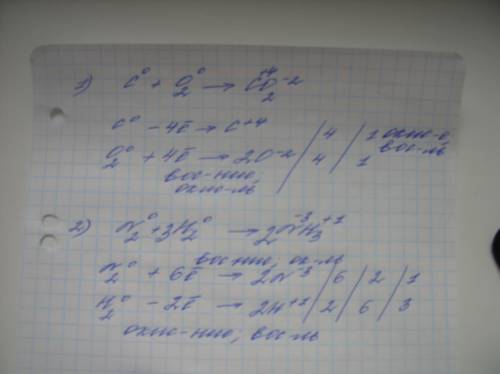 1) C⁰ + O₂⁰ → C⁺⁴O₂⁻²
C⁰ - 4ē → C⁺⁴ / 4 / 1 окис-е, вос-ль
O₂⁰ + 4ē → 2O⁻² / 4 / 1
вос-ние, окис-ль
2) N₂⁰ + 3H₂⁰ → 2N⁻³H₃⁺¹
вос-ние, ок-ль
N₂⁰ + 6ē → 2N⁻³ / 6 / 2 / 1
H₂⁰ - 2ē → 2H⁺¹ / 2 / 6 / 3
окис-ние; вос-ль